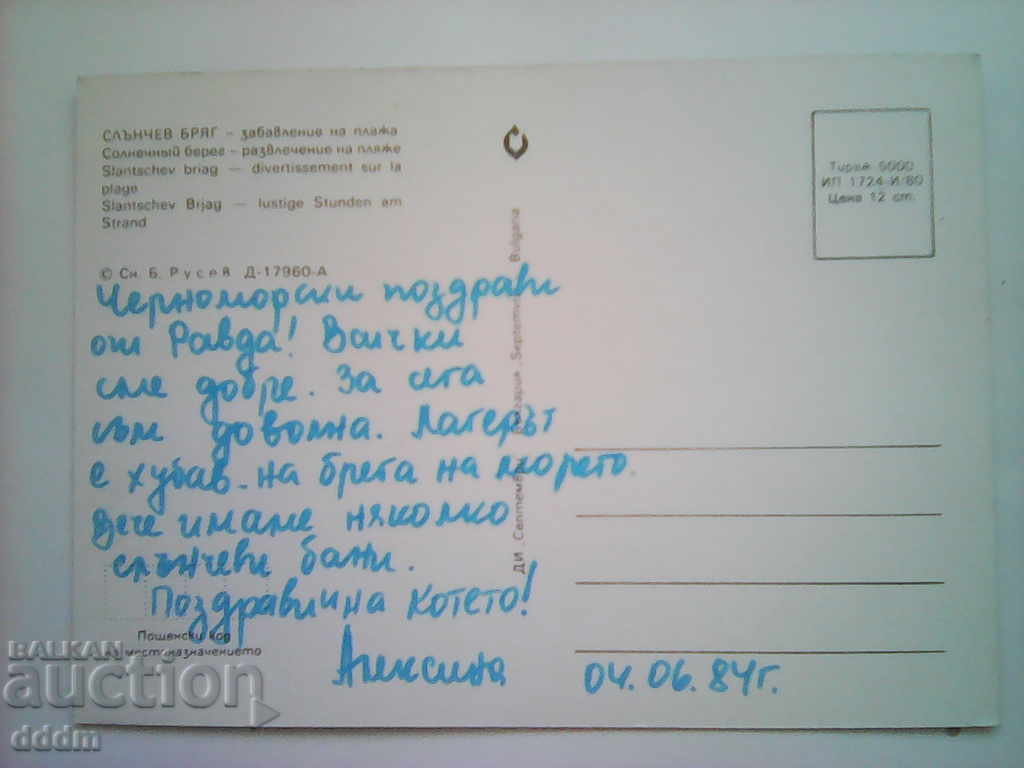 СЛЪНЧЕВ БРЯГ – забавление на плажа
Солнечный берег – развлечение на пляже
Slantschev briag — divertissement sur la
plage
Slantschev Brijag — lustige Stunden am
Strand
© Сн. Б. Русев Д-17960-А
Тираж 5000
ИП 1724-И/80
Цена 12 ст.
ДИ „Септември
България „Septemvri
Bulgaria
Черноморски поздрави
от Равда! Всички
сме добре. За сега
съм доволна. Лагерът
е хубав - на брега на морето.
Вече имаме няколко
слънчеви бани.
Поздрави на Котето!
Алексина 04.06.84г.
Пощенски код
на местоназначението
BALKAN
auction
dddm